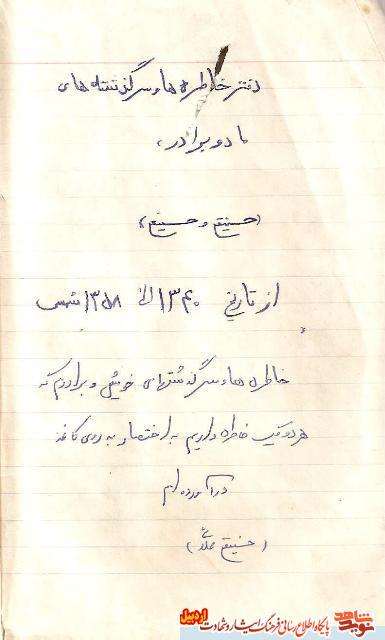 دفتر خاطره ها و سرگذشته های
ما دو برادر،
از تاریخ ۱۳۴۰ الی ۱۳۵۸ شمسی
خاطره ها و سرگذشتهای خویش و برادرم که
هر دو یک خاطره داریم به اختصار به روی کاغذ
در آورده ام
نوید شاهد
پایگاه اطلاع رسانی فرهنگ ایثار و شهادت
اردبیل